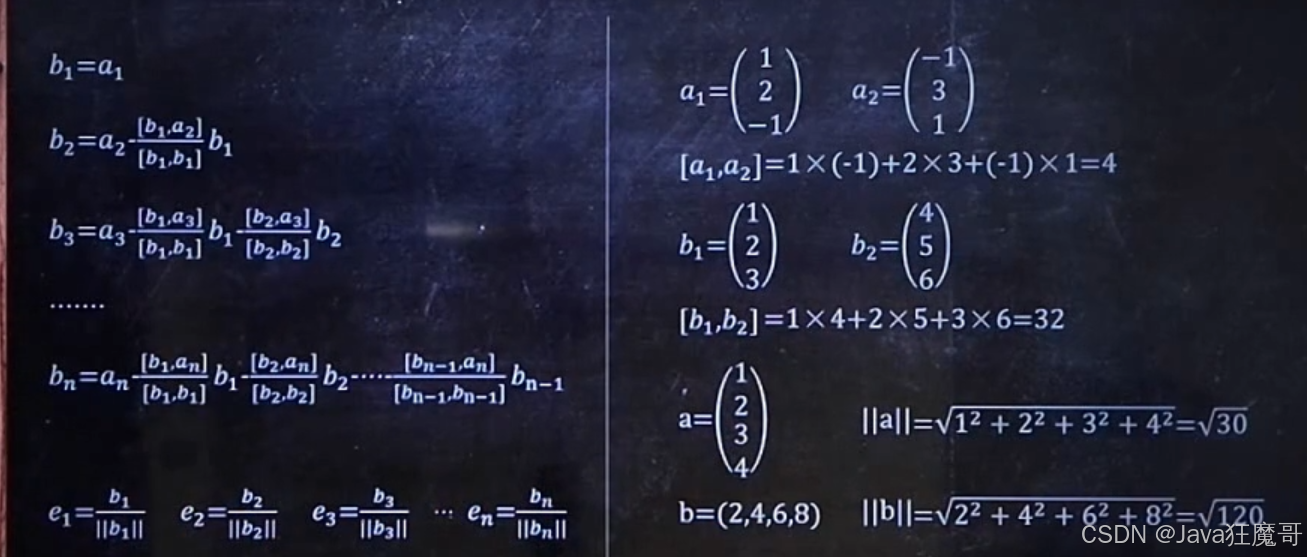 b₁=a₁
b₂=a₂-[b₁,a₂]/[b₁,b₁] b₁
b₃=a₃-[b₁,a₃]/[b₁,b₁] b₁-[b₂,a₃]/[b₂,b₂] b₂
.......
bₙ=aₙ-[b₁,aₙ]/[b₁,b₁] b₁-[b₂,aₙ]/[b₂,b₂] b₂-····-[bₙ₋₁,aₙ]/[bₙ₋₁,bₙ₋₁] bₙ₋₁
e₁=b₁/||b₁|| e₂=b₂/||b₂|| e₃=b₃/||b₃|| ··· eₙ=bₙ/||bₙ||
a₁=(1 2 −1) a₂=(−1 3 1)
[a₁,a₂]=1×(-1)+2×3+(-1)×1=4
b₁=(1 2 3) b₂=(4 5 6)
[b₁,b₂]=1×4+2×5+3×6=32
a=(1 2 3 4) ||a||=√(1² + 2² + 3² + 4²)=√30
b=(2,4,6,8) ||b||=√(2² + 4² + 6² + 8²)=√120
CSDN @Java狂魔哥